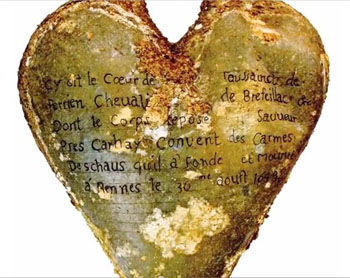 Cy gît le Cœur de Toussainct de
Perrien Cheval de Brefeillac
Dont le Corps repose Sauveur
Pres Carhay Convent des Carmes
Deschaus quil a Fonde et
á Rennes le 30 Aoust